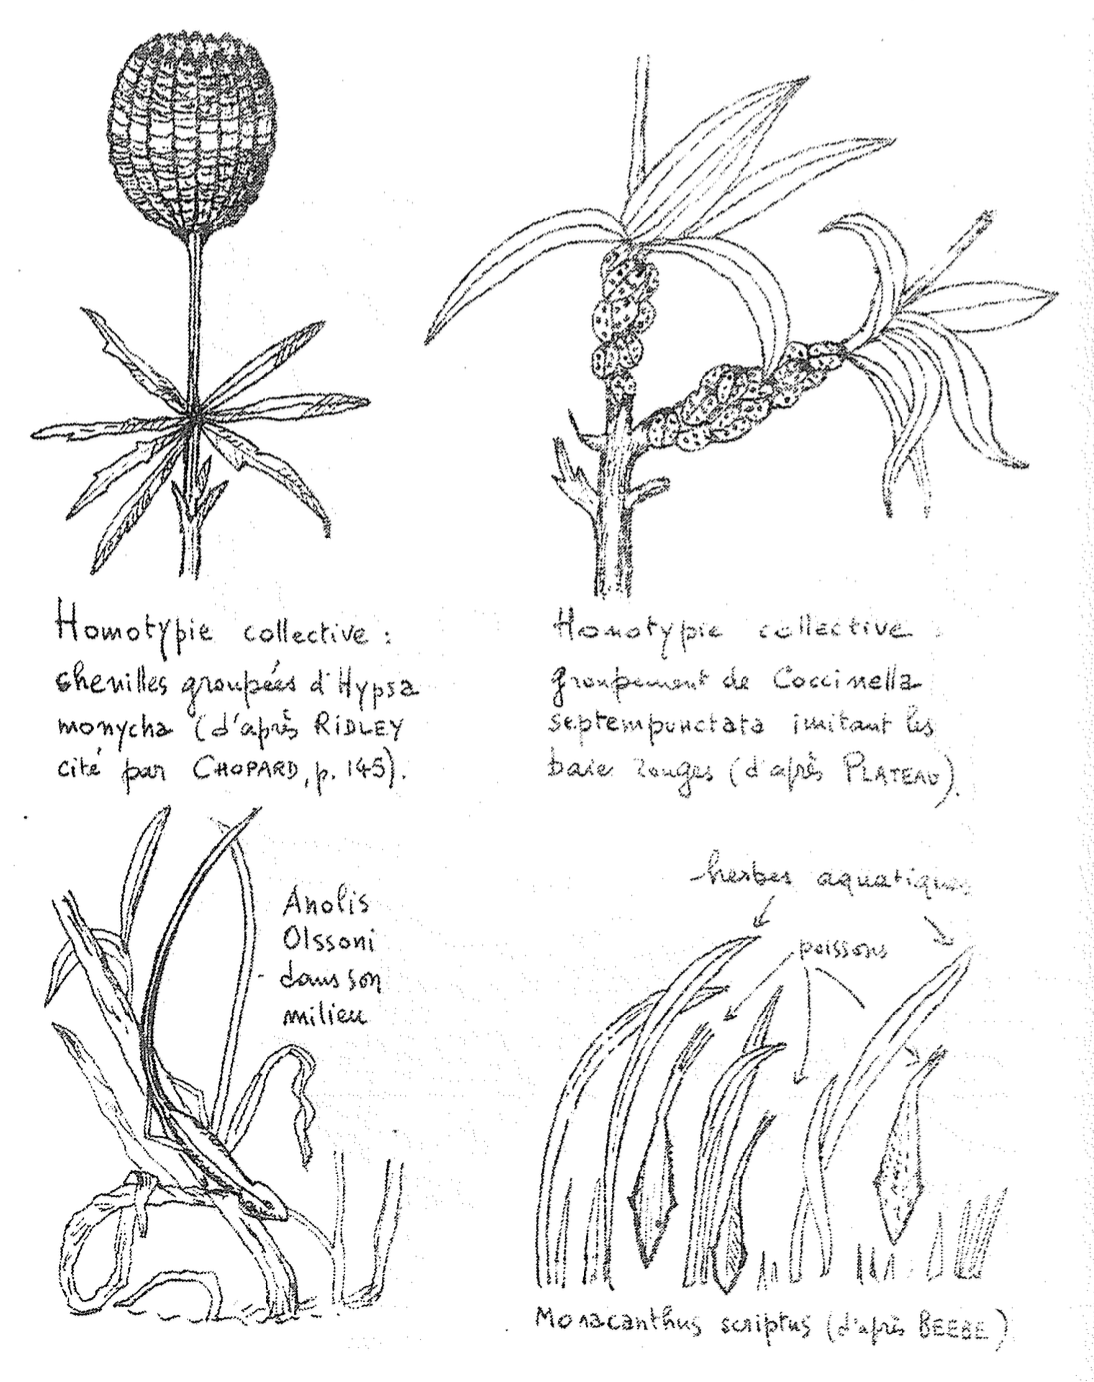 Homotypie collective :
chenilles groupées d'Hypsa
monycha (d'après RIDLEY
cité par CHOPARD, p. 145).
Homotypie collective :
groupement de Coccinella
septempunctata imitant les
baie rouges (d'après PLATEAU).
Anolis
Olssoni
dans son
milieu
herbes aquatiques
poissons
Monacanthus scriptus (d'après BEEBE)